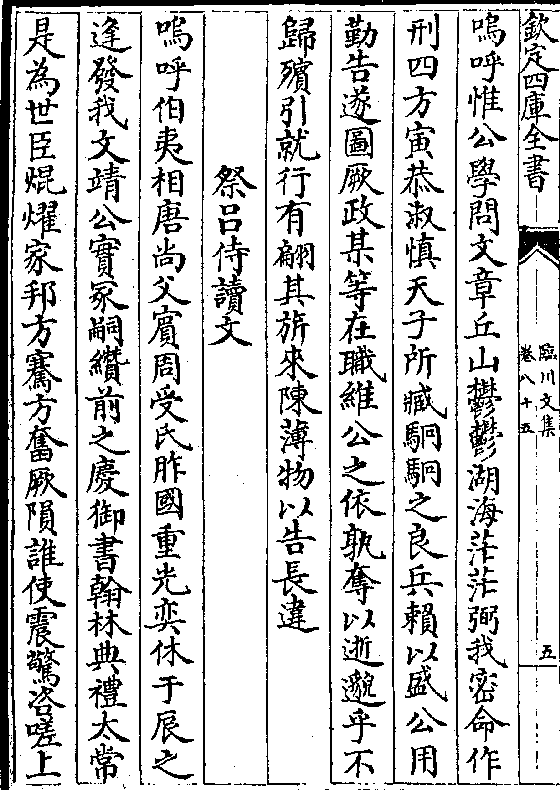 欽定四庫全書
臨川文集
卷八十五
五
嗚呼惟公學問文章丘山鬱鬱湖海茫茫弼我密命作
刑四方寅恭淑慎天子所臧駉駉之良兵賴以盛公用
勤告遂圖厥政某等在職維公之依孰奪以逝邈乎不
歸殯引就行有翩其旂來陳薄物以告長違
祭呂侍讀文
嗚呼伯夷相唐尚父賔周受氏胙國重光奕休于展之
逢發我文靖公實冢嗣纘前之慶御書翰林典禮太常
是為世臣焜燿家邦方騫方奮厥隕誰使震驚咨嗟上